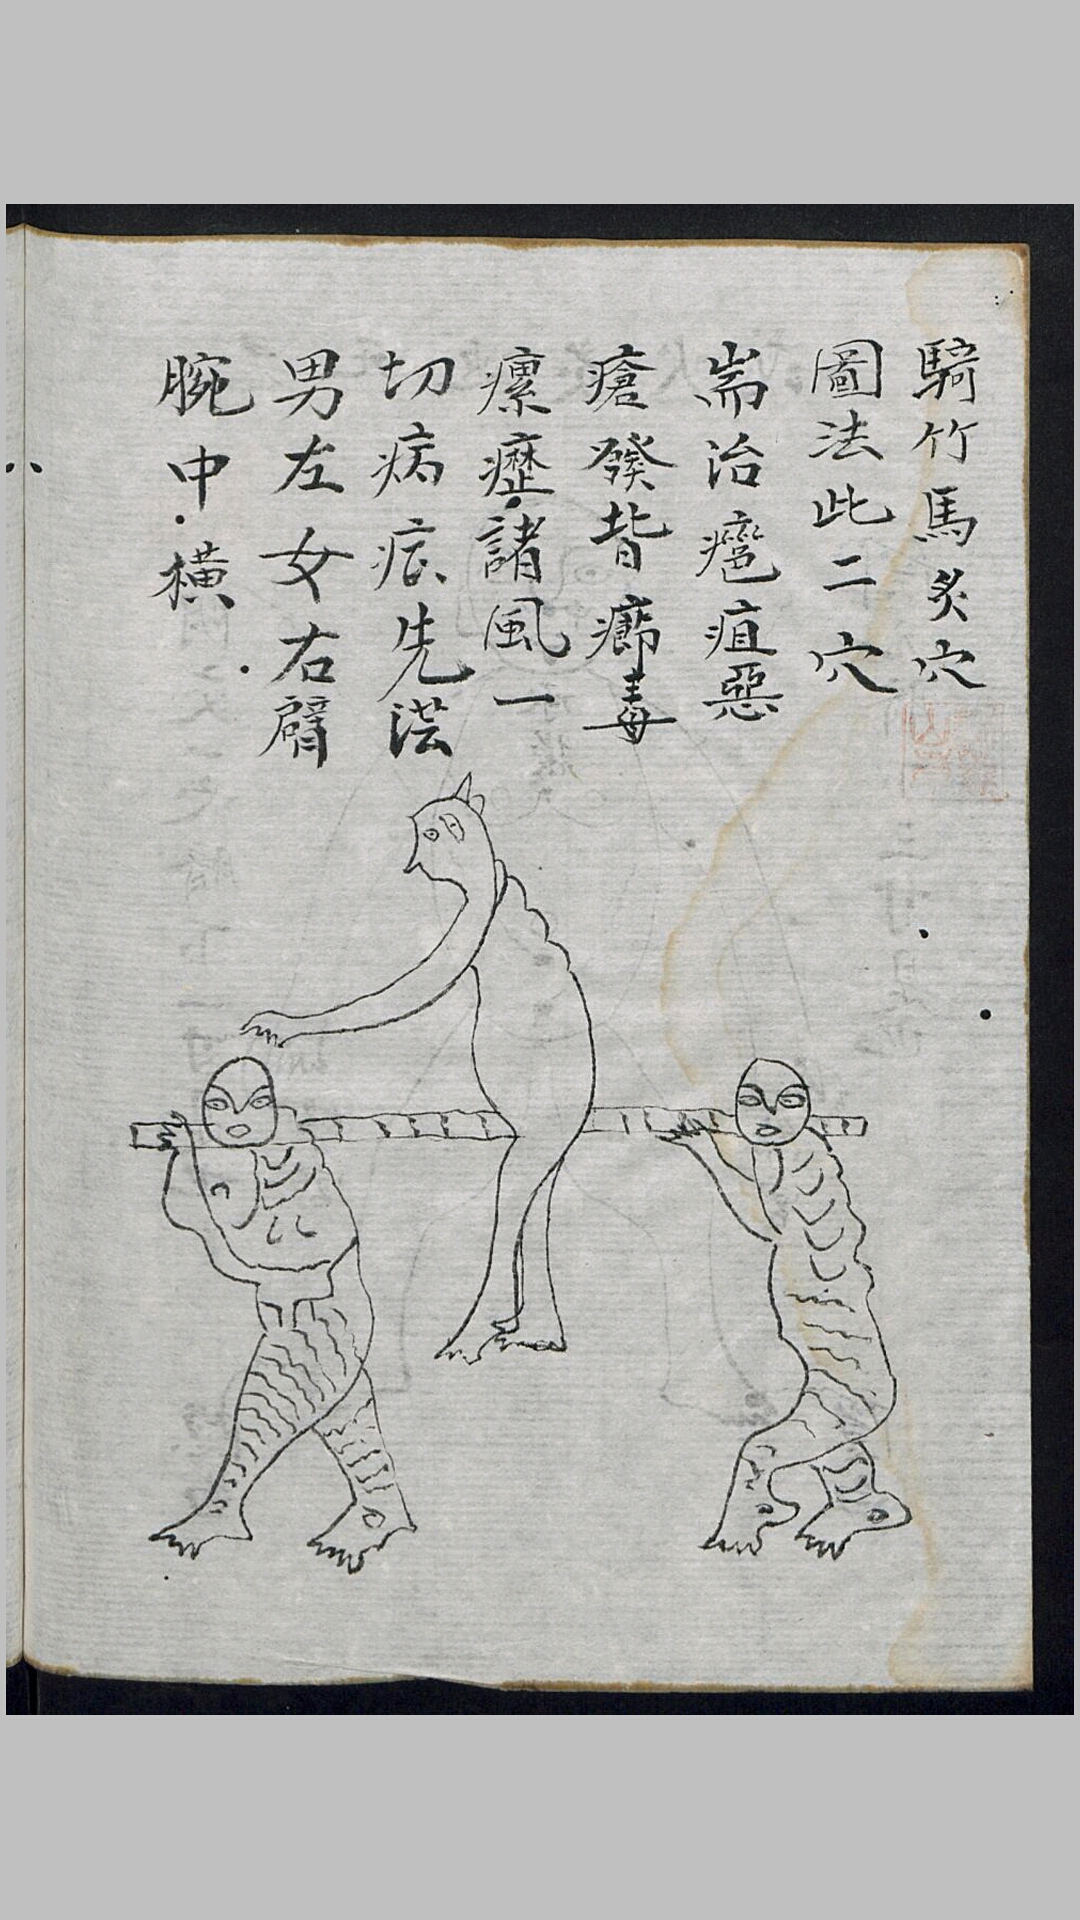 騎竹馬炙穴
圖法此二穴
耑治癰疽惡
瘡發背癤毒
瘰癧諸風一
切病症先從
男左女右臂
腕中橫